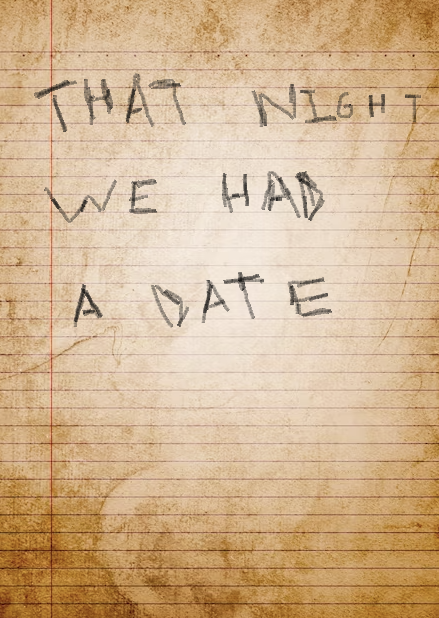 THAT NIGHT
WE HAD
A DATE